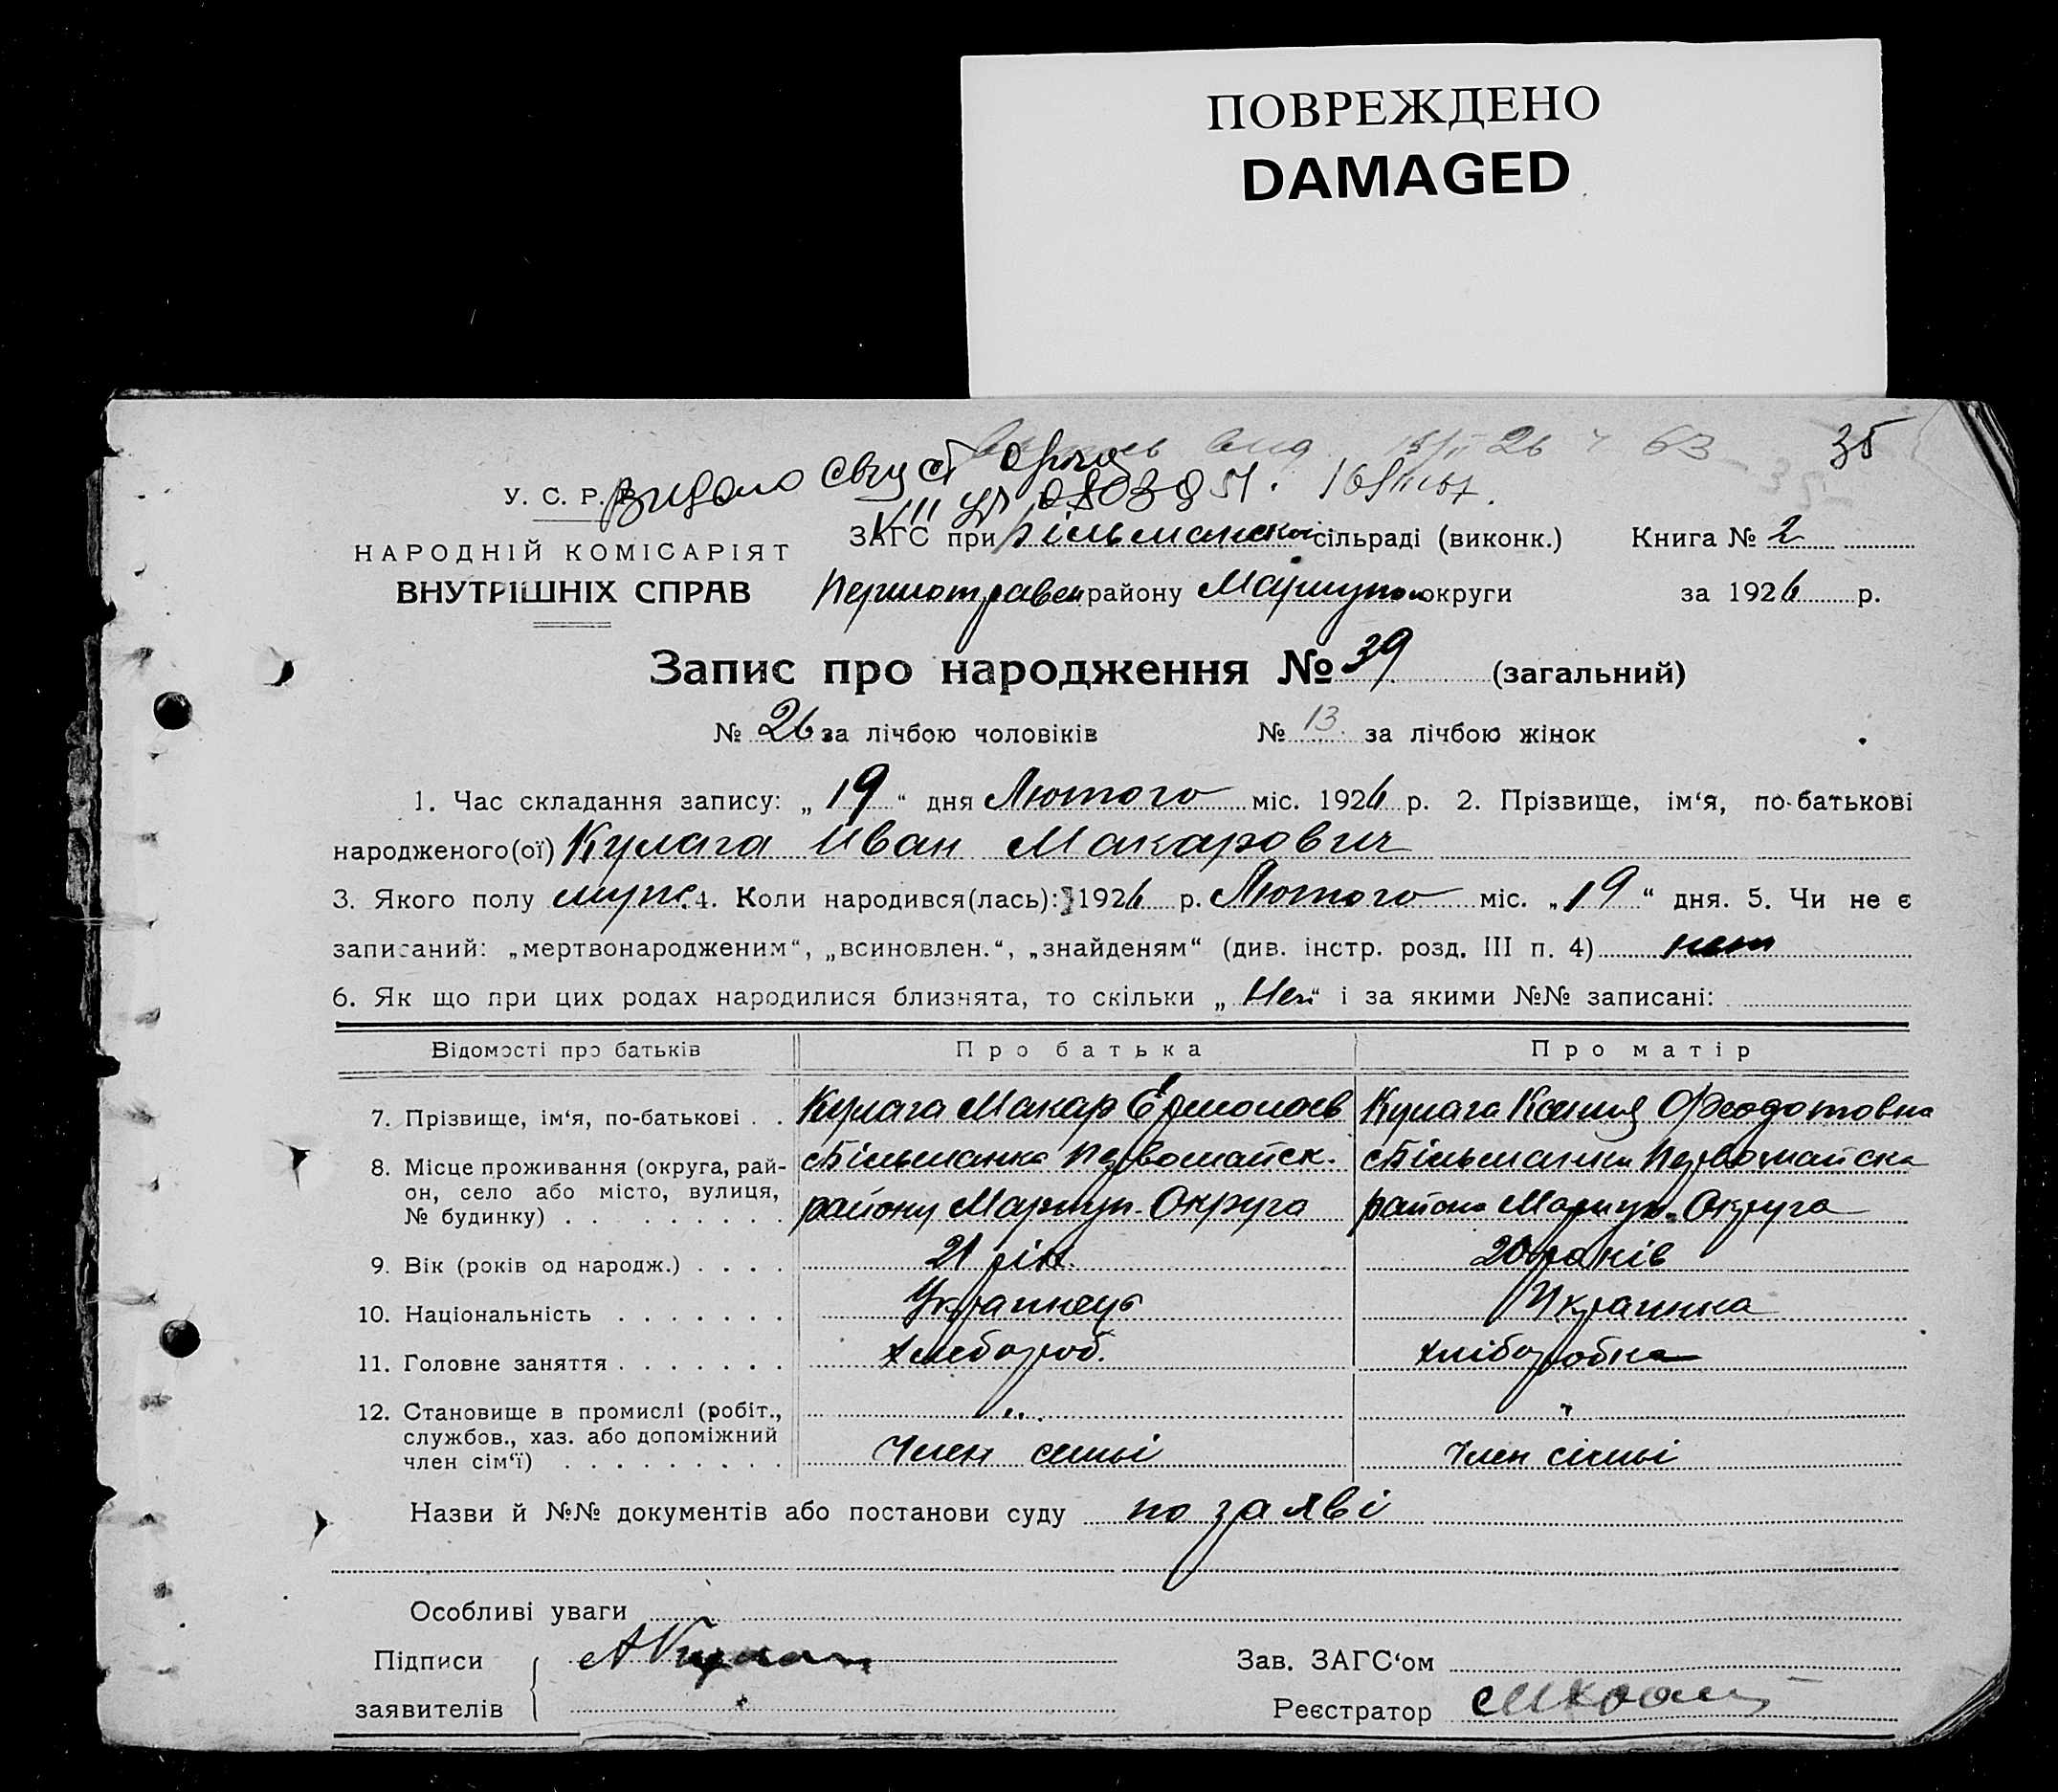 ПОВРЕЖДЕНО
DAMAGED
35
У. С. Р. Р.
НАРОДНІЙ КОМІСАРІЯТ
ВНУТРІШНІХ СПРАВ
ЗАГС при Більманской сільраді (виконк.) Книга № 2
Першотравен району Мариупол округи за 1926 р.
Запис про народження № 39 (загальний)
№ 26 за лічбою чоловіків № 13 за лічбою жінок
1. Час складання запису: „19“ дня Лютого міс. 1926 р. 2. Прізвище, ім‘я, по-батькові
народженого(ої) Кулага Иван Макарович
3. Якого полу муж. 4. Коли народився(лась): 1926 р. Лютого міс. „19“ дня. 5. Чи не є
записаний: „мертвонародженим“, „всиновлен.“, „знайденям“ (див. інстр. розд. III п. 4) нет
6. Як що при цих родах народилися близнята, то скільки „Нет“ і за якими №№ записані:
Відомості про батьків Про батька Про матір
7. Прізвище, ім‘я, по-батькові . . Кулага Макар Ермолаев Кулага Ксения Феодотовна
8. Місце проживання (округа, рай- с Більманка Первомайск. с Більманки Первомайска
он, село або місто, вулиця,
№ будинку) . . . . . . . . . району Мариуп. Округа района Мариуп. Округа
9. Вік (років од народж.) . . . . 21 рік. 20 років
10. Національність . . . . . . . Украинець Украинка
11. Головне заняття . . . . . . . хлебороб. хліборобка
12. Становище в промислі (робіт.,
службов., хаз. або допоміжний
член сім‘ї) . . . . . . . . . Член семьі Член сімьі
Назви й №№ документів або постанови суду по заяві
Особливі уваги
Підписи Зав. ЗАГС‘ом
заявителів Реєстратор